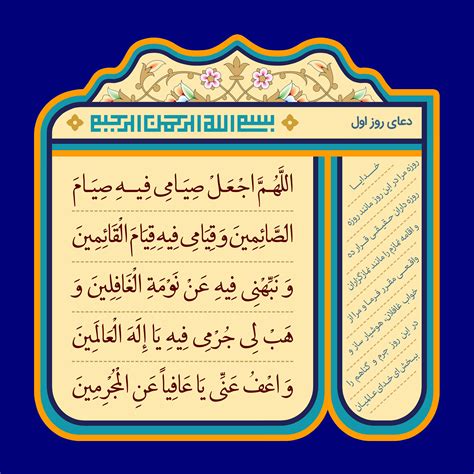 دعای روز اول
بسم الله الرحمن الرحیم
اللَّهُمَّ اجْعَلْ صِیَامِی فِیهِ صِیَامَ
الصَّائِمِینَ وَ قِیَامِی فِیهِ قِیَامَ الْقَائِمِینَ
وَ نَبِّهْنِی فِیهِ عَنْ نَوْمَةِ الْغَافِلِینَ وَ
هَبْ لِی جُرْمِی فِیهِ یَا إِلَهَ الْعَالَمِینَ
وَ اعْفُ عَنِّی یَا عَافِیاً عَنِ الْمُجْرِمِینَ
خدایا
روزه مرا در این روز مانند روزه
روزه داران حقیقی قرار ده
و اقامه نمازم را مانند نمازگزاران
واقعی مقرر فرما و مرا از
خواب غافلان، هوشیار ساز و
در این روز جرم و گناهم را
ببخش ای خدای عالمیان